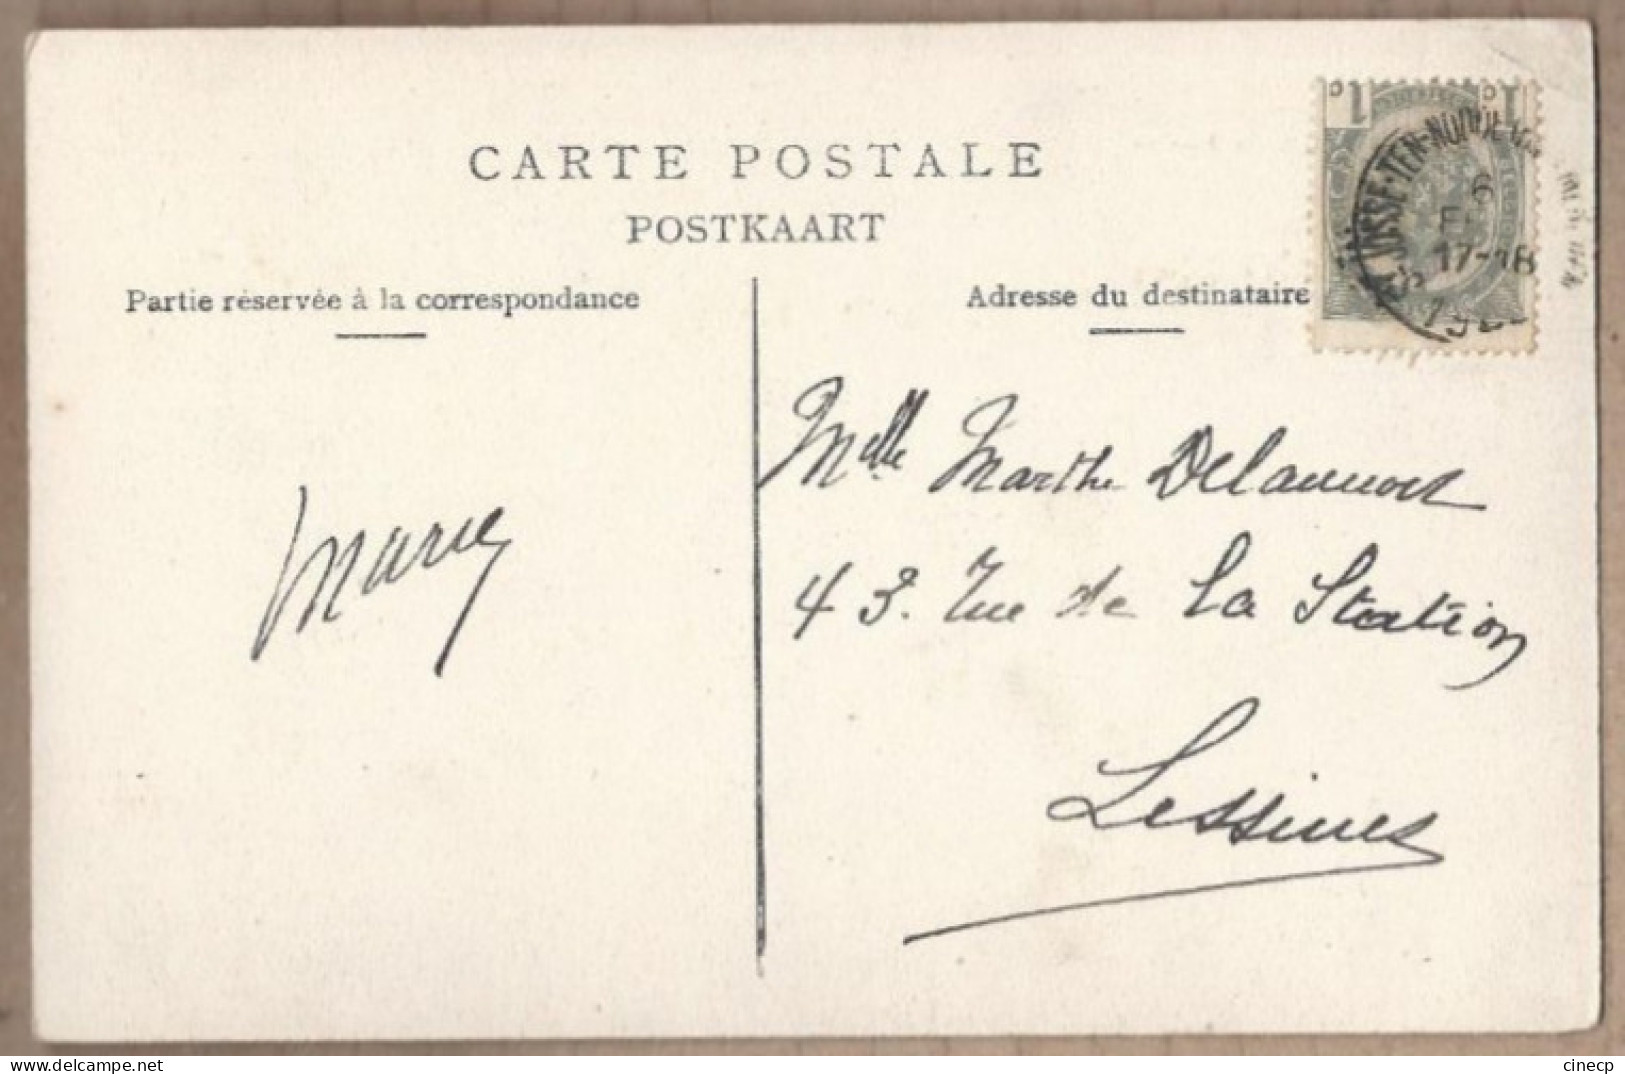 CARTE POSTALE
POSTKAART
Partie réservée à la correspondance
Adresse du destinataire
1 c 1 c
ST JOSSE-TEN-NOODE
6
17-18
Melle Marthe Delaunoit
43. rue de La Station
Lessines
Marie
cinecp